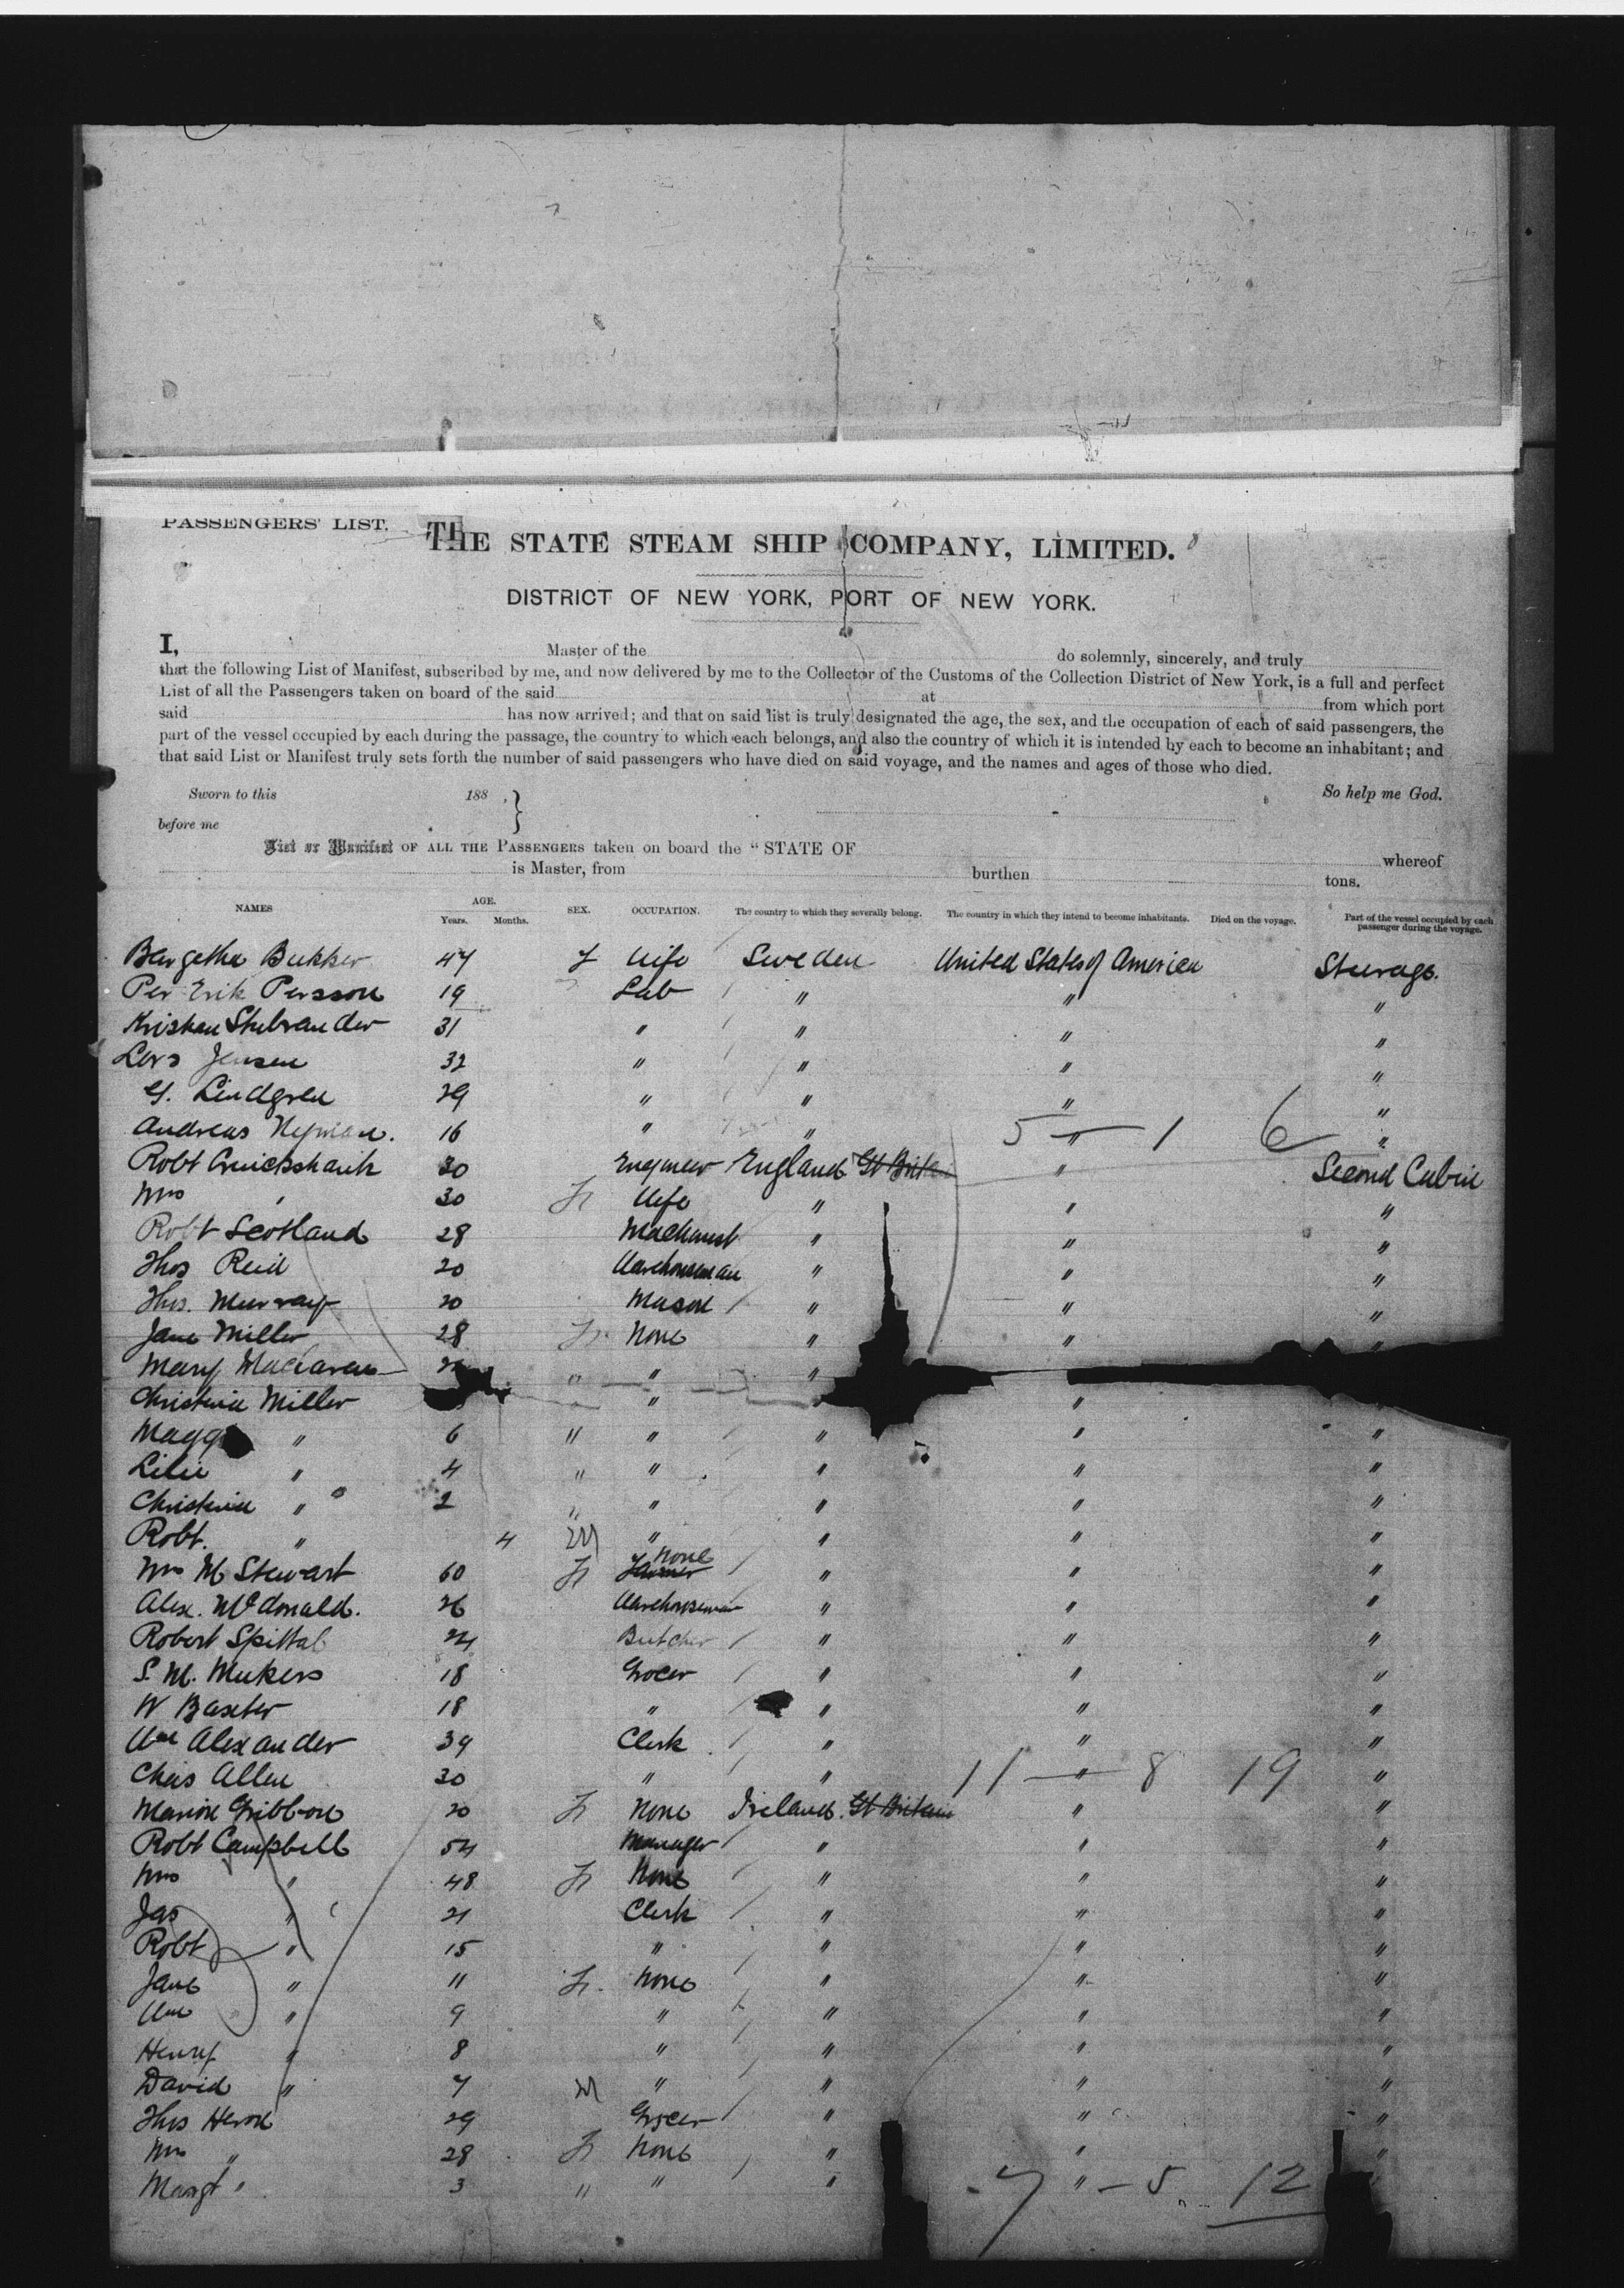 PASSENGERS' LIST.
THE STATE STEAM SHIP COMPANY, LIMITED.
DISTRICT OF NEW YORK, PORT OF NEW YORK.
I, Master of the do solemnly, sincerely, and truly
that the following List of Manifest, subscribed by me, and now delivered by me to the Collector of the Customs of the Collection District of New York, is a full and perfect
List of all the Passengers taken on board of the said at from which port
said has now arrived; and that on said list is truly designated the age, the sex, and the occupation of each of said passengers, the
part of the vessel occupied by each during the passage, the country to which each belongs, and also the country of which it is intended by each to become an inhabitant; and
that said List or Manifest truly sets forth the number of said passengers who have died on said voyage, and the names and ages of those who died.
Sworn to this 188 . } So help me God.
before me
List or Manifest OF ALL THE PASSENGERS taken on board the "STATE OF whereof
is Master, from burthen tons.
NAMES AGE. Years. Months. SEX. OCCUPATION. The country to which they severally belong. The country in which they intend to become inhabitants. Died on the voyage. Part of the vessel occupied by each passenger during the voyage.
47 f Wife Sweden United States of America Steerage.
Per Erik Persson 19 Lab " " "
31 " " " "
Lars Jensen 32 " " " "
G. Lindgren 29 " " " "
Andreas Nyman. 16 " " 5 — " — 1 6 "
Robt Cruickshank 30 Engineer England Gt Britain " Second Cabin
Mrs " 30 F Wife " " "
Robt Scotland 28 Machinist " " "
Thos Reid 20 Warehouseman " " "
Thos. Murray 20 Mason " " "
Jane Miller 28 F. None " " "
Mary Maclaren " " "
Christina Miller " "
Magg " 6 " " " " "
Lilie " 4 " " " " "
Christina " 2 " " " " "
Robt. " 4 M " " " "
Mrs M Stewart 60 F Farmer None " " "
Alex. McDonald. 26 Warehouseman " " "
Robert Spittal 24 Butcher " " "
S. M. 18 Grocer " " "
W Baxter 18 " " " "
Wm Alexander 39 Clerk " " "
Chas Allen 30 " " 11 — " — 8 19 "
Marion Gibbon 20 F None Ireland. Gt Britain " "
Robt Campbell 54 Manager " " "
Mrs " 48 F None " " "
Jas " 21 Clerk " " "
Robt " 15 " " " "
Jane " 11 F. None " " "
Wm " 9 " " " "
Henry " 8 " " " "
David " 7 M " " " "
Thos Heron 29 Grocer " " "
Mrs " 28 F None " " "
Margt " 3 " " " 7 " — 5 12 "